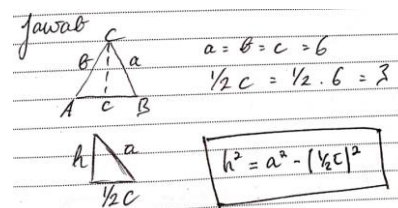 Jawab
C
b a
A c B
a = b = c = 6
1/2 c = 1/2 . 6 = 3
h a
1/2 c
h² = a² - (1/2c)²